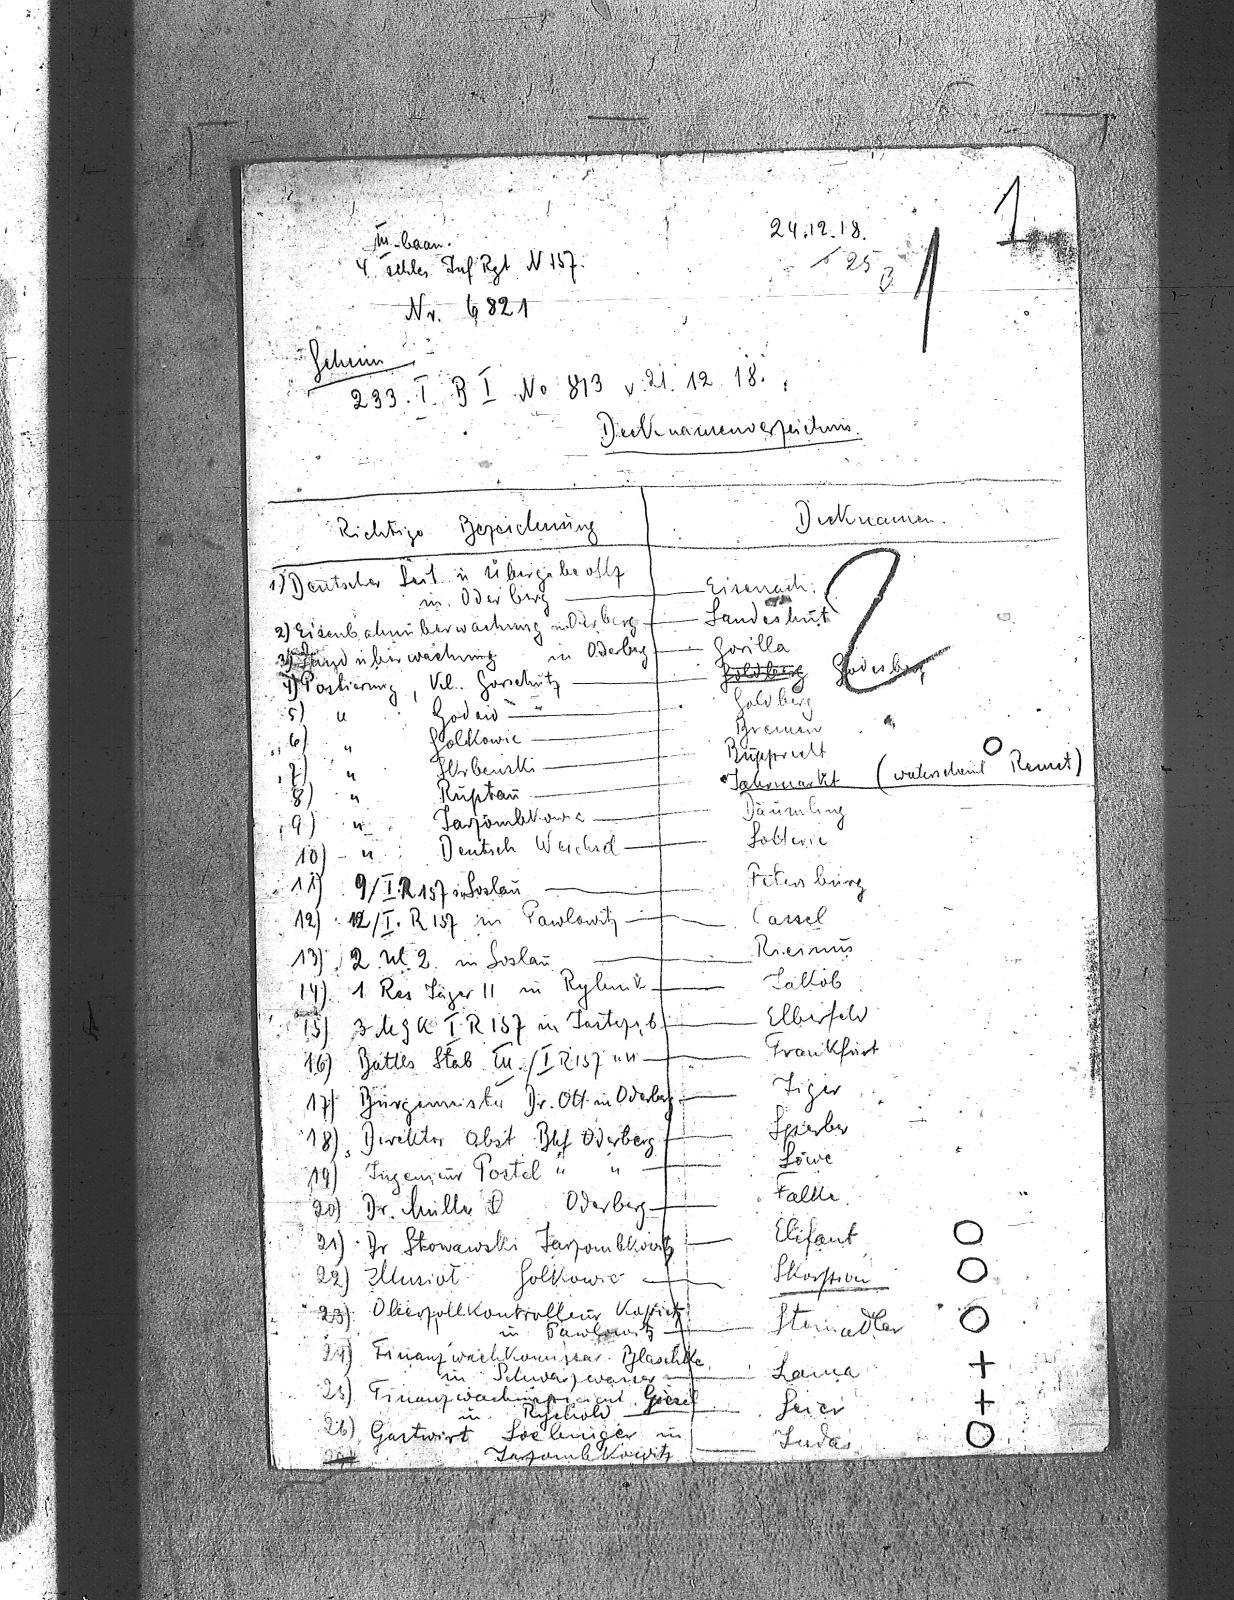 III. baon.
4 schles Inf Rgt N 157.
Nr. 6821
24.12.18.
25
1
1
Geheim
233. I B I No 813 v. 21. 12 18.
Decknamenverzeichnis.
Richtige Bezeichnung Decknamen.
1) Deutscher Leit u Übergabeoffz
in Oderberg Eisenach.
2
2) Eisenbahnüberwachung in Oderberg Landeshut
3) überwachung in Oderberg Gorilla
4) Postierung, Kl. Gorschütz Goldberg Godesberg
5) " Godow " Goldberg
6) " Golkowic Bremen
7) " Skrbenski Rupprecht
8) " Ruptau Jahrmarkt (wahrscheinl Remet)
9) " Jarzombkowic Däumling
10) " Deutsch Weichsel Lotterie
11) 9/I.R 157 in Loslau Petersburg
12) 12/I.R 157 in Pawlowitz Cassel
13) 2 Ul 2. in Loslau Ricinus
14) 1 Res Jäger 11 in Rybnik Jakob
15) 3 M G K I R 157 in Jastrzemb Elberfeld
16) Batls Stab III./I R 157 " " Frankfurt
17) Bürgermeister Dr. Ott in Oderberg Tiger
18) Direktor Obst Bhf Oderberg Sperber
19) Ingenieur Postel " " Löwe
20) Dr. Müller Oderberg Falke
21) Dr Skowawski Jarzombkowitz Elifant O
22) Golkowic Skorpion O
23) Oberzollkontrolleur
in Pawlowitz Steinadler O
24) Finanzwachkomissar Blaschke
in Schwarzwasser Lama +
25) Gösel
in Geier +
26) Gastwirt in
Jarzombkowitz Judas O